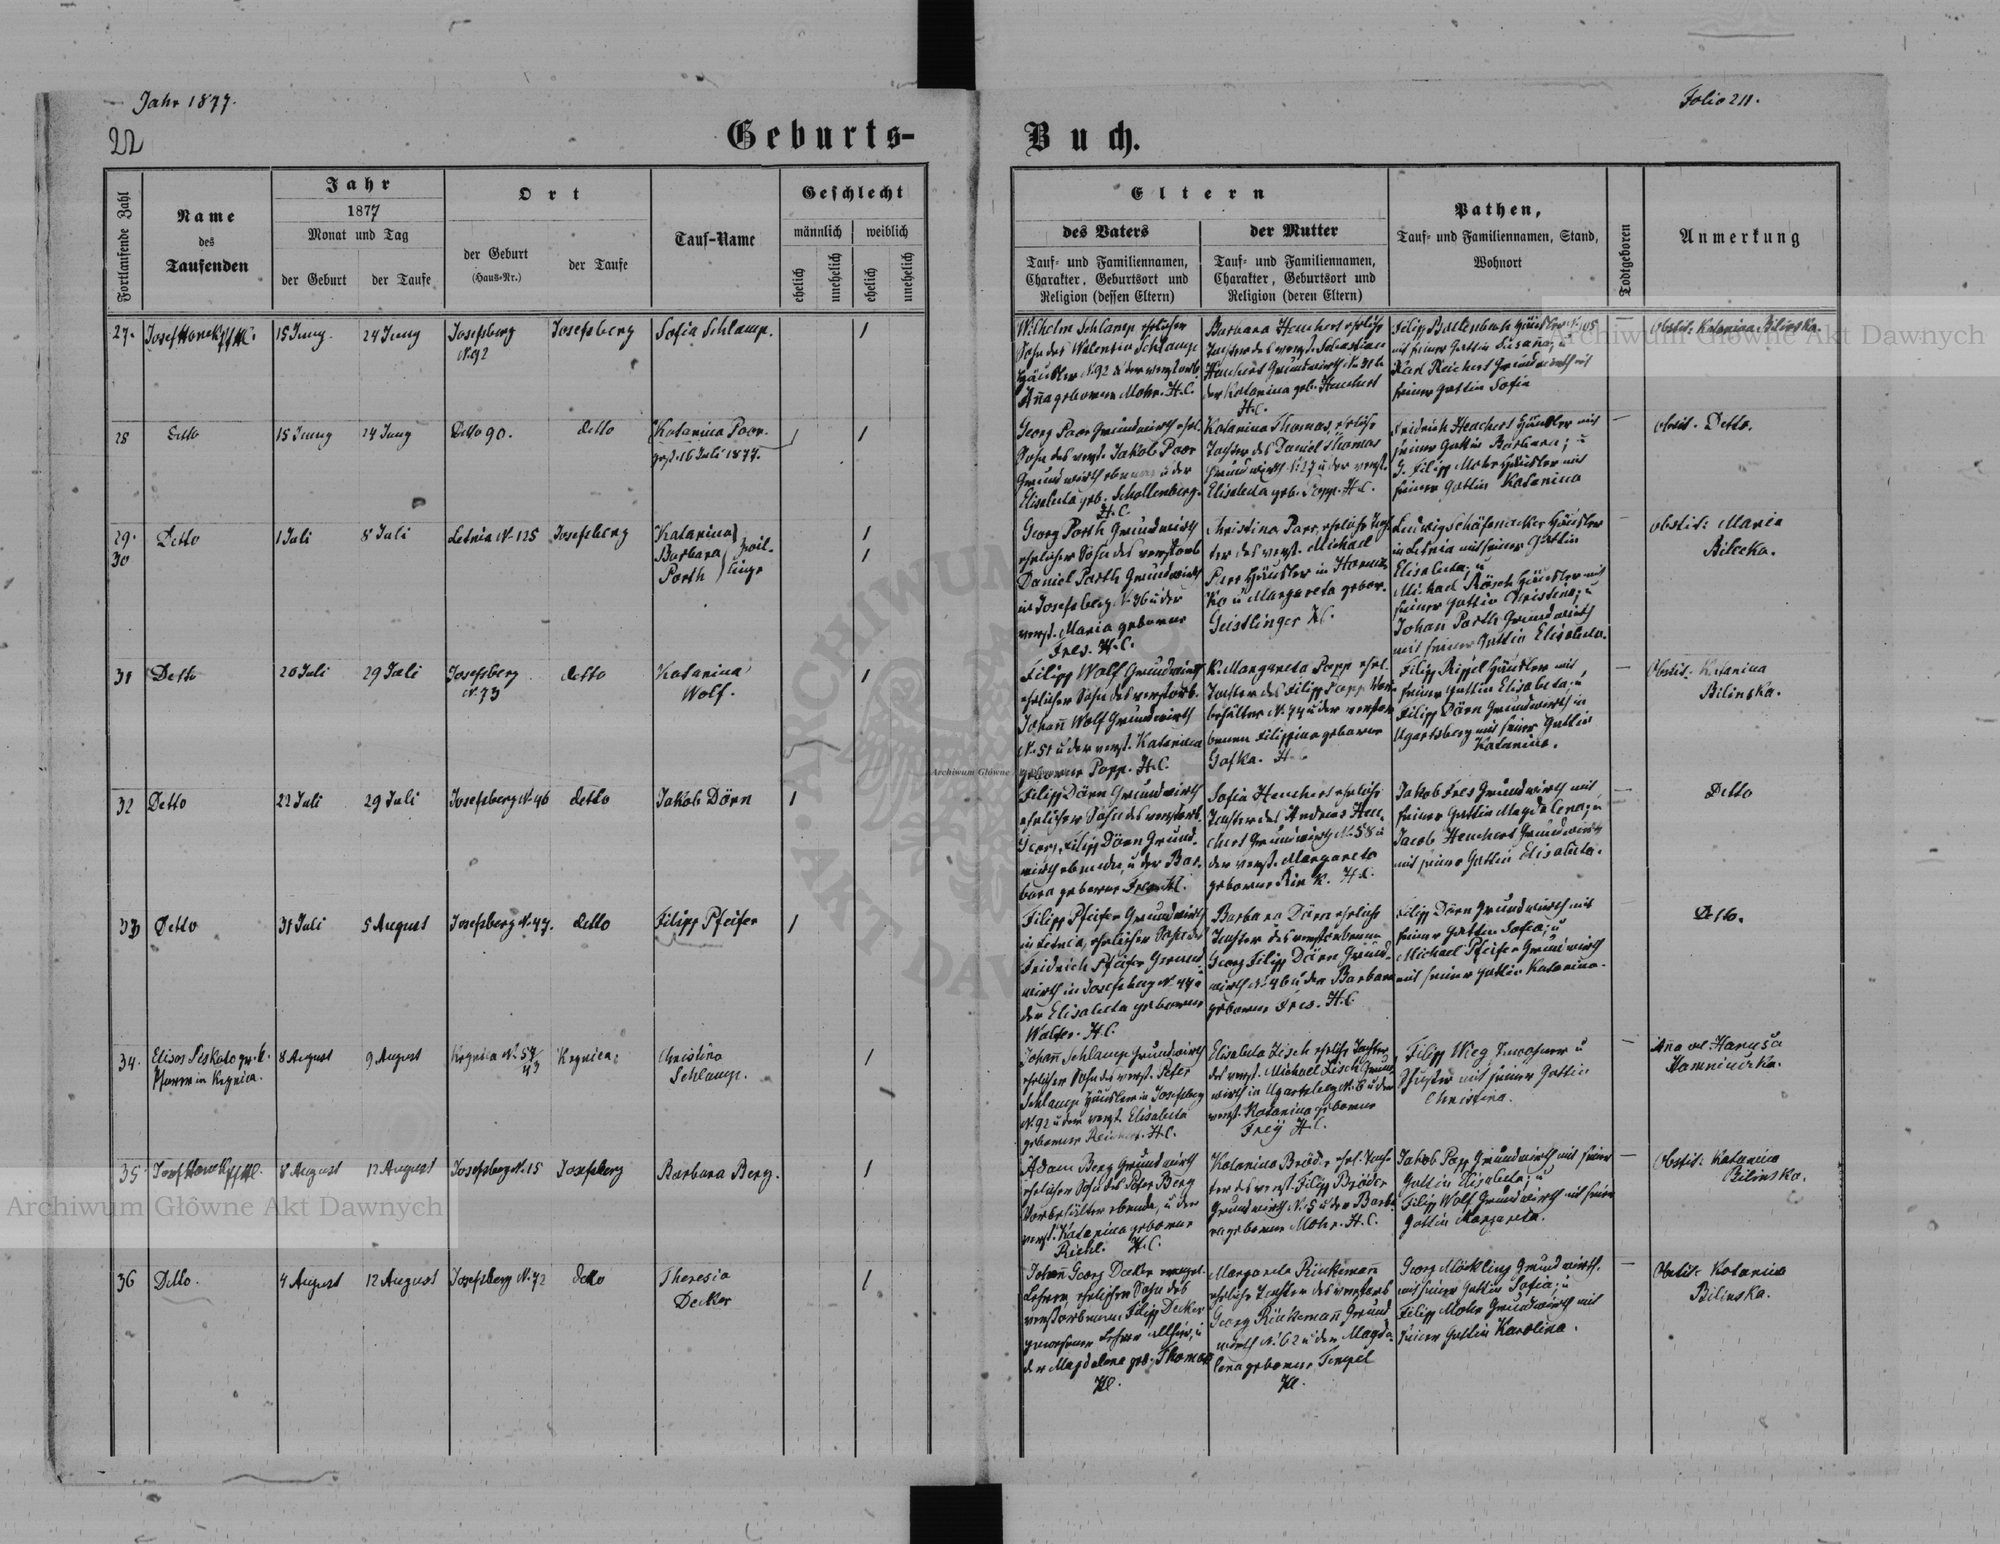 Jahr 1877.
Folio 211.
22
Geburts-
Buch.
Fortlaufende Zahl
Name
des
Taufenden
Jahr
1877
Monat und Tag
der Geburt
der Taufe
Ort
der Geburt
(Haus-Nr.)
der Taufe
Tauf-Name
Geschlecht
männlich
weiblich
ehelich
unehelich
ehelich
unehelich
Eltern
des Vaters
Tauf- und Familiennamen,
Charakter, Geburtsort und
Religion (dessen Eltern)
der Mutter
Tauf- und Familiennamen,
Charakter, Geburtsort und
Religion (deren Eltern)
Pathen,
Tauf- und Familiennamen, Stand,
Wohnort
Todtgeboren
Anmerkung
27.
Josef
15 Juny.
24 Juny
Josefsberg
N. 92
Josefsberg
Sofia Schlamp.
1
Wilhelm Schlamp ehelicher
Sohn des Valentin Schlamp
Häusler N. 92 u der verstorb.
Anna geborenen Mohr. H.C.
Barbara Heuchert eheliche
Tochter des verst. Sebastian
Heuchert Grundwirth
der Katarina geb. Heuchert
H.C.
Filipp Häusler N. 105
mit seiner Gattin Susana; u
Karl Reichert Grundwirth mit
seiner Gattin Sofia
—
Obstit: Katarina Bilinska.
28
Detto
15 Juny
24 Juny
Detto 90.
detto
Katarina Poor.
gest. 16 Juli 1877.
1
1
Georg Poor Grundwirth ehel.
Sohn des verst. Jakob Poor
Grundwirth u der
Elisabeta geb. Schollenberg.
H.C.
Katarina Thomas, eheliche
Tochter des Daniel Thomas
Grundwirth N. 27 u der verst.
Elisabeta geb. Popp. H.C.
Fridrich Heuchert Häusler mit
seiner Gattin Barbara; u
G. Filipp Mohr Häusler mit
seiner Gattin Katarina
—
obstit. Detto.
29.
30
Detto
1 Juli
8 Juli
Letnia N. 125
Josefsberg
Katarina
Barbara
Porth
Zwil-
linge
1
1
Georg Porth Grundwirth
ehelicher Sohn des verstorb.
Daniel Porth Grundwirth
in Josefsberg N. 36 u der
verst. Maria geborene
Fres. H.C.
Christina Parr, eheliche Toch-
ter des verst. Michael
Parr Häusler in
u Margareta gebor.
Geistlinger H.C.
Ludwig Schäfenacker Häusler
in Letnia mit seiner Gattin
Elisabeta; u
Michael Rösch Häusler mit
seiner Gattin Christina; u
Johan Porth Grundwirth
mit seiner Gattin Elisabeta.
—
obstit: Maria
Bilecka.
31
Detto
20 Juli
29 Juli
Josefsberg
N. 73
detto
Katarina
Wolf.
1
Filipp Wolf Grundwirth
ehelicher Sohn des verstorb.
Johann Wolf Grundwirth
N. 51 u der verst. Katarina
geborene Popp. H.C.
K. Margareta Popp ehel.
Tochter des Filipp Popp Vor-
behälter N. 74 u der verstor-
benen Filippina geborene
Gafka. H.C.
Filipp Rippel Häusler mit
seiner Gattin Elisabeta; u
Filipp Dörn Grundwirth in
Ugartsberg mit seiner Gattin
Katarina.
—
Obstit: Katarina
Bilinska.
32
Detto
22 Juli
29 Juli
Josefsberg N. 46
detto
Jakob Dörn
1
Filipp Dörn Grundwirth
ehelicher Sohn des verstorb.
Georg Filipp Dörn Grund-
wirth ebenda, u der Bar-
bara geborene Fres. H.C.
Sofia Heuchert eheliche
Tochter des Andreas Heu-
chert Grundwirth N. 58 u
der verst. Margareta
geborene Rink. H.C.
Jakob Fres Grundwirth mit
seiner Gattin Magdalena; u
Jacob Heuchert Grundwirth
mit seiner Gattin Elisabeta.
—
Detto
33
Detto
31 Juli
5 August
Josefsberg N. 47.
detto
Filipp Pfeifer
1
Filipp Pfeifer Grundwirth
in Letnia, ehelicher Sohn des
Fridrich Pfeifer Grund-
wirth in Josefsberg N. 44 u
der Elisabeta geborene
Walter. H.C.
Barbara Dörn eheliche
Tochter des verstorbenen
Georg Filipp Dörn Grund-
wirth N. 46 u der Barbara
geborene Fres. H.C.
Filipp Dörn Grundwirth mit
seiner Gattin Sofia; u
Michael Pfeifer Grundwirth
mit seiner Gattin Katarina.
—
Detto.
34.
Pfarrer in Krynica.
8 August
9 August
Krynica N. 54/43
Krynica
Christina
Schlamp.
1
Johann Schlamp Grundwirth
ehelicher Sohn des verst. Peter
Schlamp Häusler in Josefsberg
N. 92 u der verst. Elisabeta
geborene Reichert. H.C.
Elisabeta Zisch eheliche Tochter
des verst. Michael Zisch Grund-
wirth in Ugartsberg N. 6 u der
verst. Katarina geborene
Frey H.C.
Filipp Wieg Inwohner u
Schuster mit seiner Gattin
Christina.
—
Anna vel Hanusia
35
8 August
12 August
Josefsberg N. 15
Josefsberg
Barbara Berg.
1
Adam Berg Grundwirth
ehelicher Sohn des Peter Berg
Vorbehälter ebenda, u der
verst. Katarina geborene
Riehl. H.C.
Katarina Bröder ehel. Toch-
ter des verst. Filipp Bröder
Grundwirth N. 5 u der Barba-
ra geborene Mohr. H.C.
Jakob Popp Grundwirth mit seiner
Gattin Elisabeta; u
Filipp Wolf Grundwirth mit seiner
Gattin Margareta.
—
Obstit: Katarina
Bilinska.
36
Detto.
4 August
12 August
Josefsberg N. 72
detto
Theresia
Decker
1
Johann Georg Decker evangel.
Lehrer, ehelicher Sohn des
verstorbenen Filipp Decker
gewesener Lehrer allhier, u
der Magdalena geb. Thomas
H.C.
Margareta Rinkemann
eheliche Tochter des verstorb.
Georg Rinkemann Grund-
wirth N. 62 u der Magda-
lena geborene Tempel
H.C.
Georg Möckling Grundwirth
mit seiner Gattin Sofia; u
Filipp Mohr Grundwirth mit
seiner Gattin Karolina.
—
Obstit: Katarina
Bilinska.
Archiwum Główne Akt Dawnych
Archiwum Główne Akt Dawnych
ARCHIWUM
AKT DAW